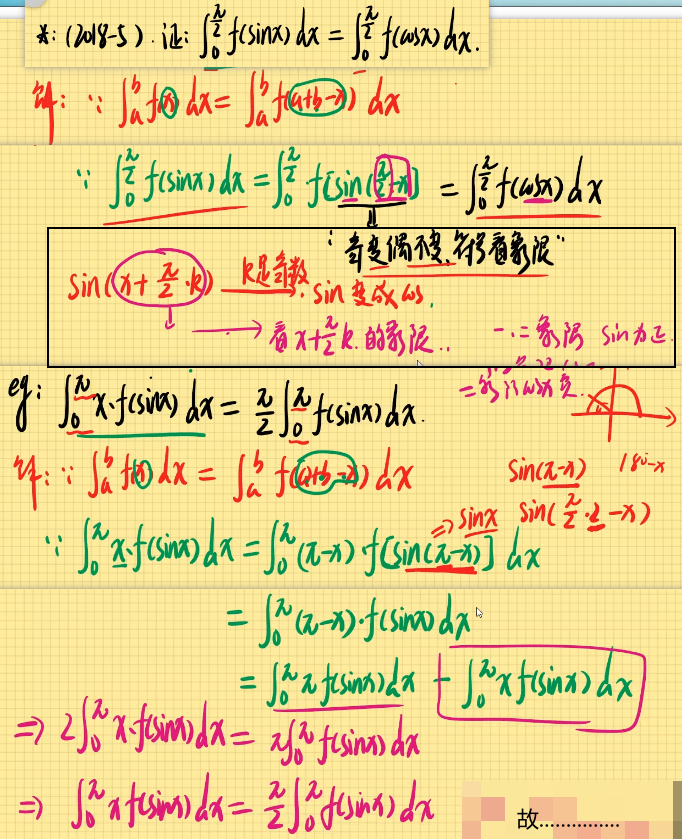 *: (2018-5). 证: ∫₀^{π/2} f(sinx) dx = ∫₀^{π/2} f(cosx) dx.
解: ∵ ∫ₐᵇ f(x) dx = ∫ₐᵇ f(a+b-x) dx
∵ ∫₀^{π/2} f(sinx) dx = ∫₀^{π/2} f[sin(π/2-x)] = ∫₀^{π/2} f(cosx) dx
"奇变偶不变, 符号看象限"
sin(x+π/2·k) k是奇数, sin 变成 cos.
→ 看 x+π/2 k. 的象限.. 一.二象限 sin为正
eg: ∫₀^π x·f(sinx) dx = π/2 ∫₀^π f(sinx) dx.
解: ∵ ∫ₐᵇ f(x) dx = ∫ₐᵇ f(a+b-x) dx
sin(π-x) 180-x
sin(π/2·2-x)
∵ ∫₀^π x·f(sinx) dx = ∫₀^π (π-x)·f[sin(π-x)] dx ⇒ sinx
= ∫₀^π (π-x)·f(sinx) dx
= ∫₀^π π f(sinx) dx - ∫₀^π x f(sinx) dx
⇒ 2∫₀^π x·f(sinx) dx = π∫₀^π f(sinx) dx
⇒ ∫₀^π x f(sinx) dx = π/2 ∫₀^π f(sinx) dx
故..............